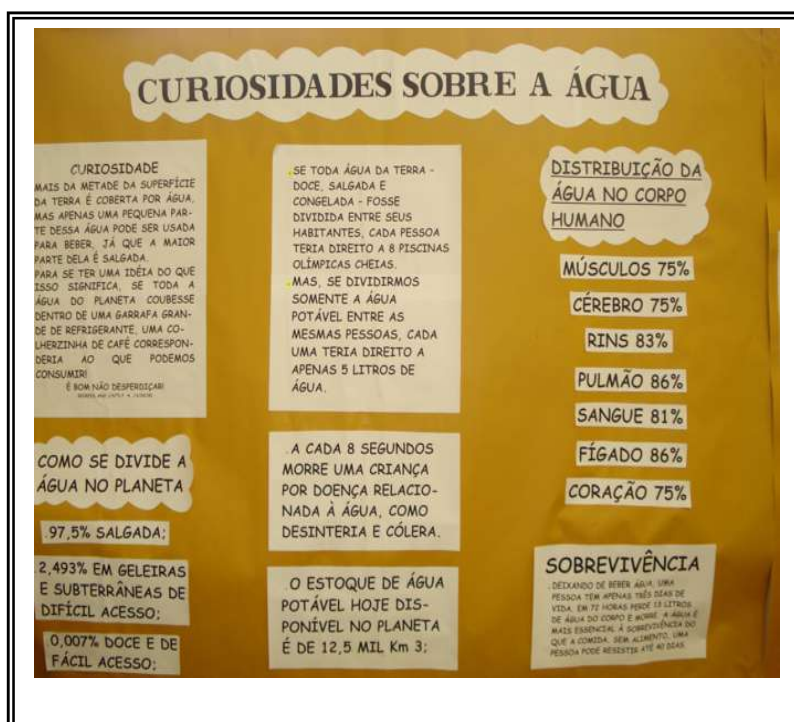 CURIOSIDADES SOBRE A ÁGUA
CURIOSIDADE
MAIS DA METADE DA SUPERFÍCIE
DA TERRA É COBERTA POR ÁGUA,
MAS APENAS UMA PEQUENA PAR-
TE DESSA ÁGUA PODE SER USADA
PARA BEBER, JÁ QUE A MAIOR
PARTE DELA É SALGADA.
PARA SE TER UMA IDÉIA DO QUE
ISSO SIGNIFICA, SE TODA A
ÁGUA DO PLANETA COUBESSE
DENTRO DE UMA GARRAFA GRAN-
DE DE REFRIGERANTE, UMA CO-
LHERZINHA DE CAFÉ CORRESPON-
DERIA AO QUE PODEMOS
CONSUMIR!
É BOM NÃO DESPERDIÇAR!
COMO SE DIVIDE A
ÁGUA NO PLANETA
.97,5% SALGADA;
2,493% EM GELEIRAS
E SUBTERRÂNEAS DE
DIFÍCIL ACESSO;
0,007% DOCE E DE
FÁCIL ACESSO;
.SE TODA ÁGUA DA TERRA -
DOCE, SALGADA E
CONGELADA - FOSSE
DIVIDIDA ENTRE SEUS
HABITANTES, CADA PESSOA
TERIA DIREITO A 8 PISCINAS
OLÍMPICAS CHEIAS.
.MAS, SE DIVIDIRMOS
SOMENTE A ÁGUA
POTÁVEL ENTRE AS
MESMAS PESSOAS, CADA
UMA TERIA DIREITO A
APENAS 5 LITROS DE
ÁGUA.
.A CADA 8 SEGUNDOS
MORRE UMA CRIANÇA
POR DOENÇA RELACIO-
NADA À ÁGUA, COMO
DESINTERIA E CÓLERA.
.O ESTOQUE DE ÁGUA
POTÁVEL HOJE DIS-
PONÍVEL NO PLANETA
É DE 12,5 MIL Km 3;
DISTRIBUIÇÃO DA
ÁGUA NO CORPO
HUMANO
MÚSCULOS 75%
CÉREBRO 75%
RINS 83%
PULMÃO 86%
SANGUE 81%
FÍGADO 86%
CORAÇÃO 75%
SOBREVIVÊNCIA
.DEIXANDO DE BEBER ÁGUA, UMA
PESSOA TEM APENAS TRÊS DIAS DE
VIDA. EM 72 HORAS PERDE 13 LITROS
DE ÁGUA DO CORPO E MORRE. A ÁGUA É
MAIS ESSENCIAL À SOBREVIVÊNCIA DO
QUE A COMIDA. SEM ALIMENTO, UMA
PESSOA PODE RESISTIR ATÉ 40 DIAS.